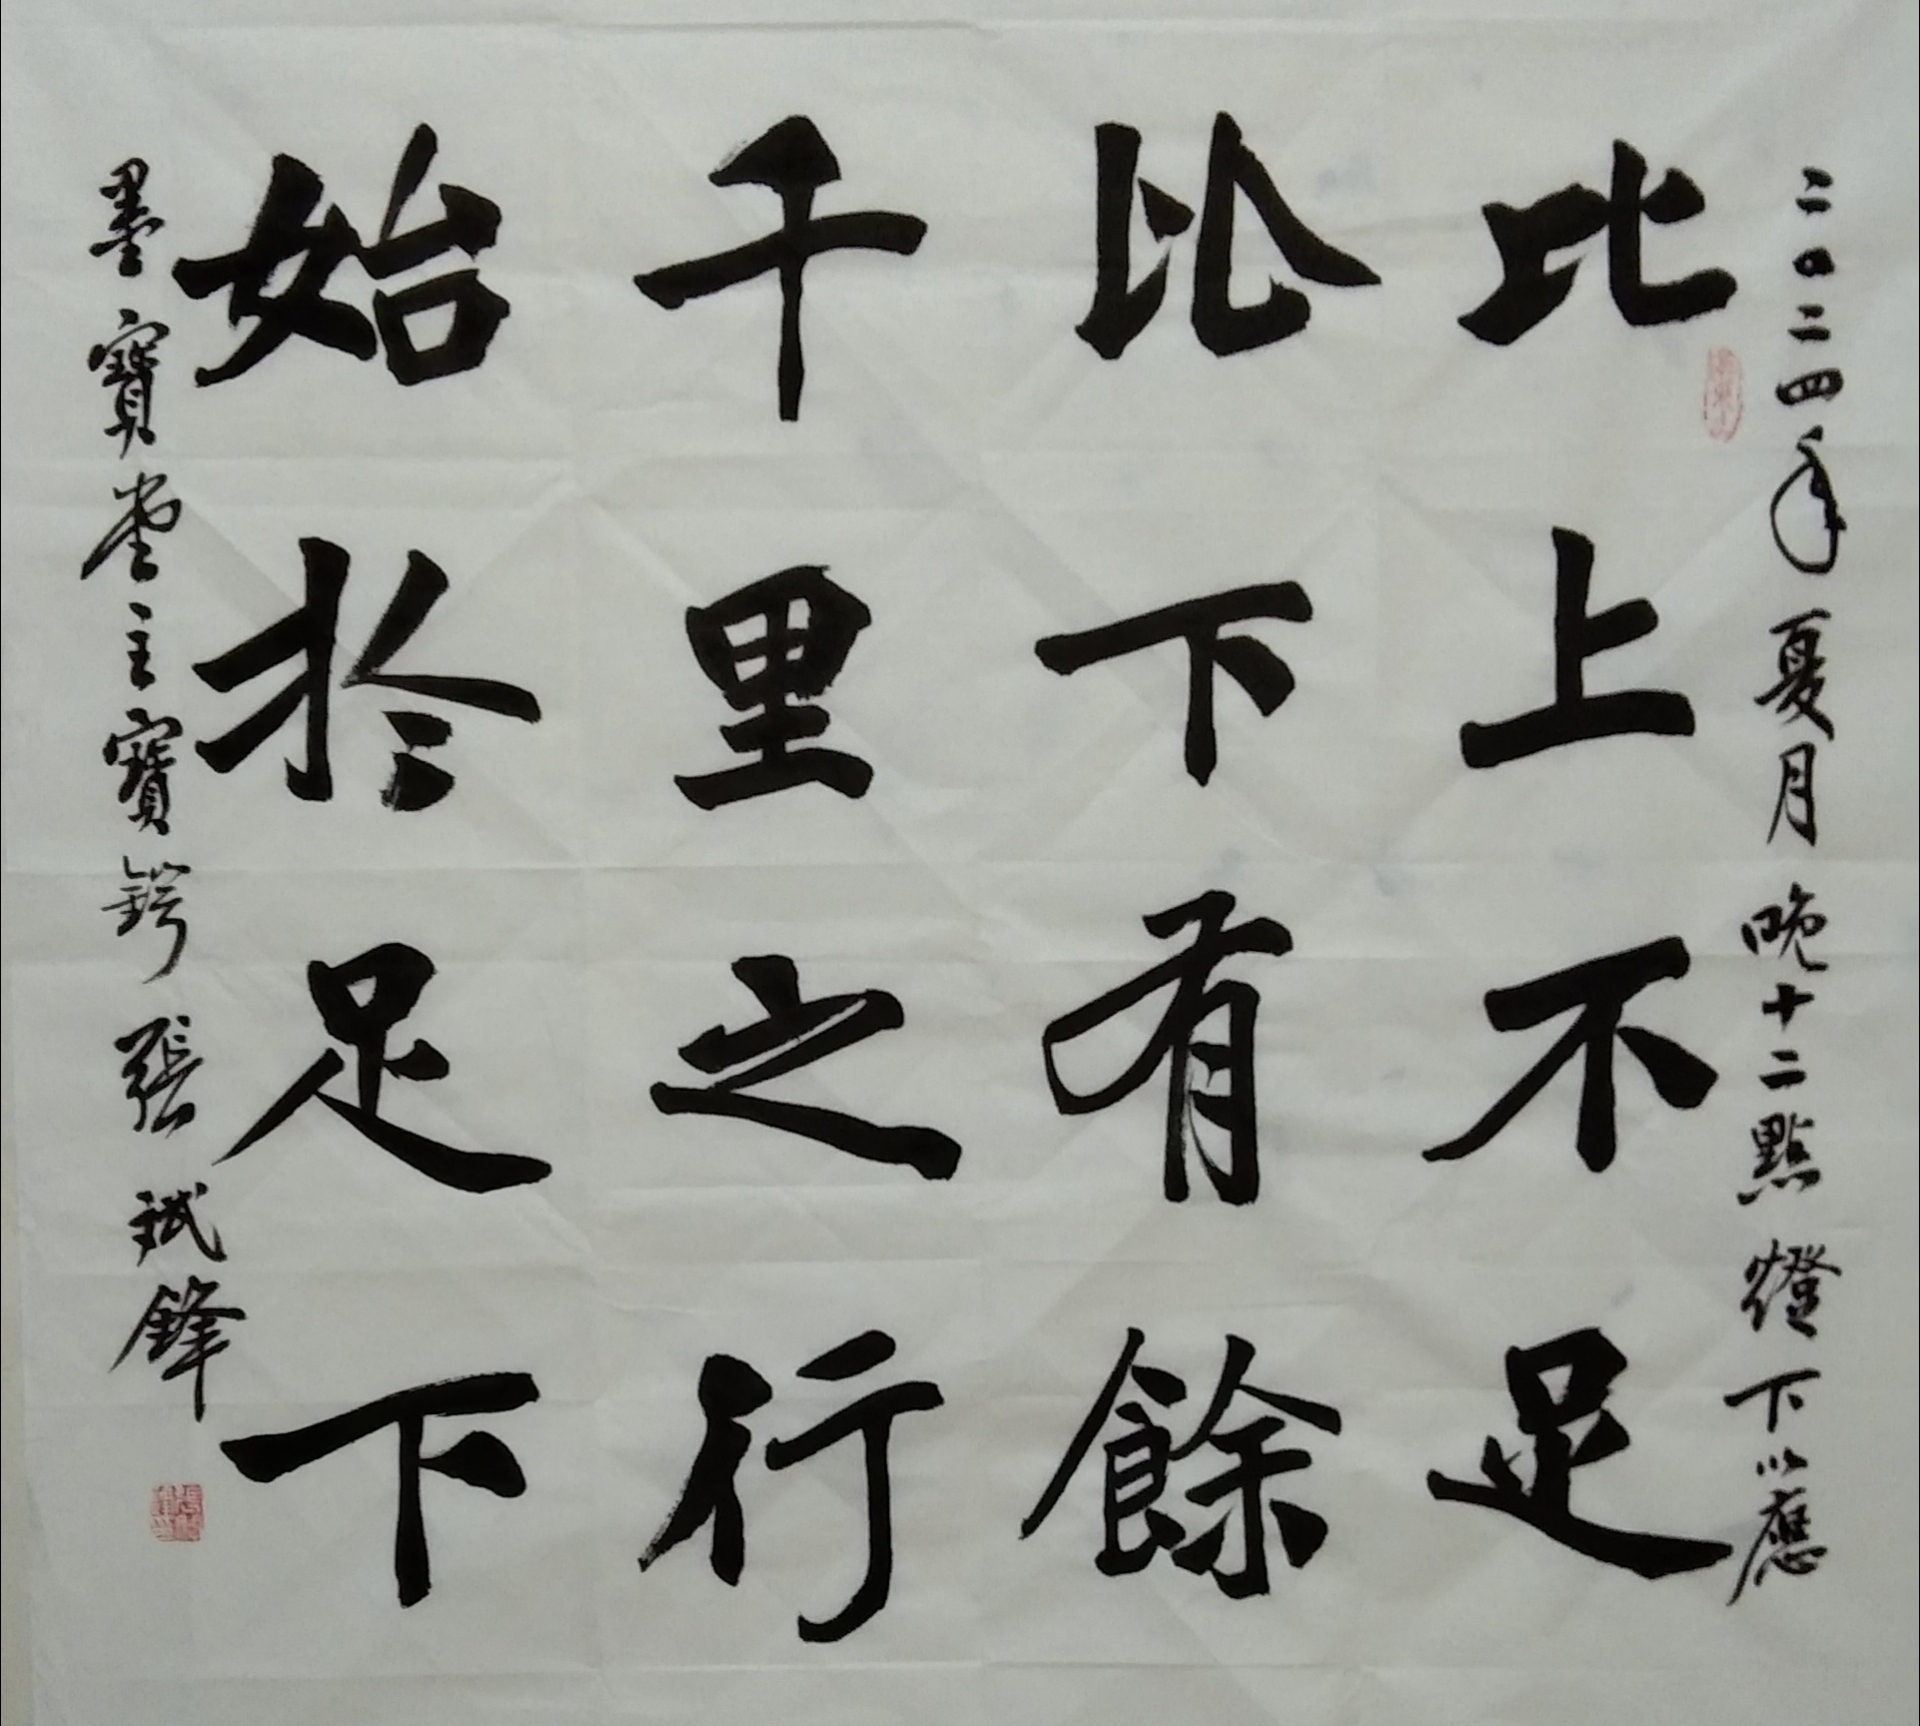 二〇二四年夏月晚十二點燈下以應
比上不足
比下有餘
千里之行
始於足下
墨寶堂主寶鍔張斌鋒